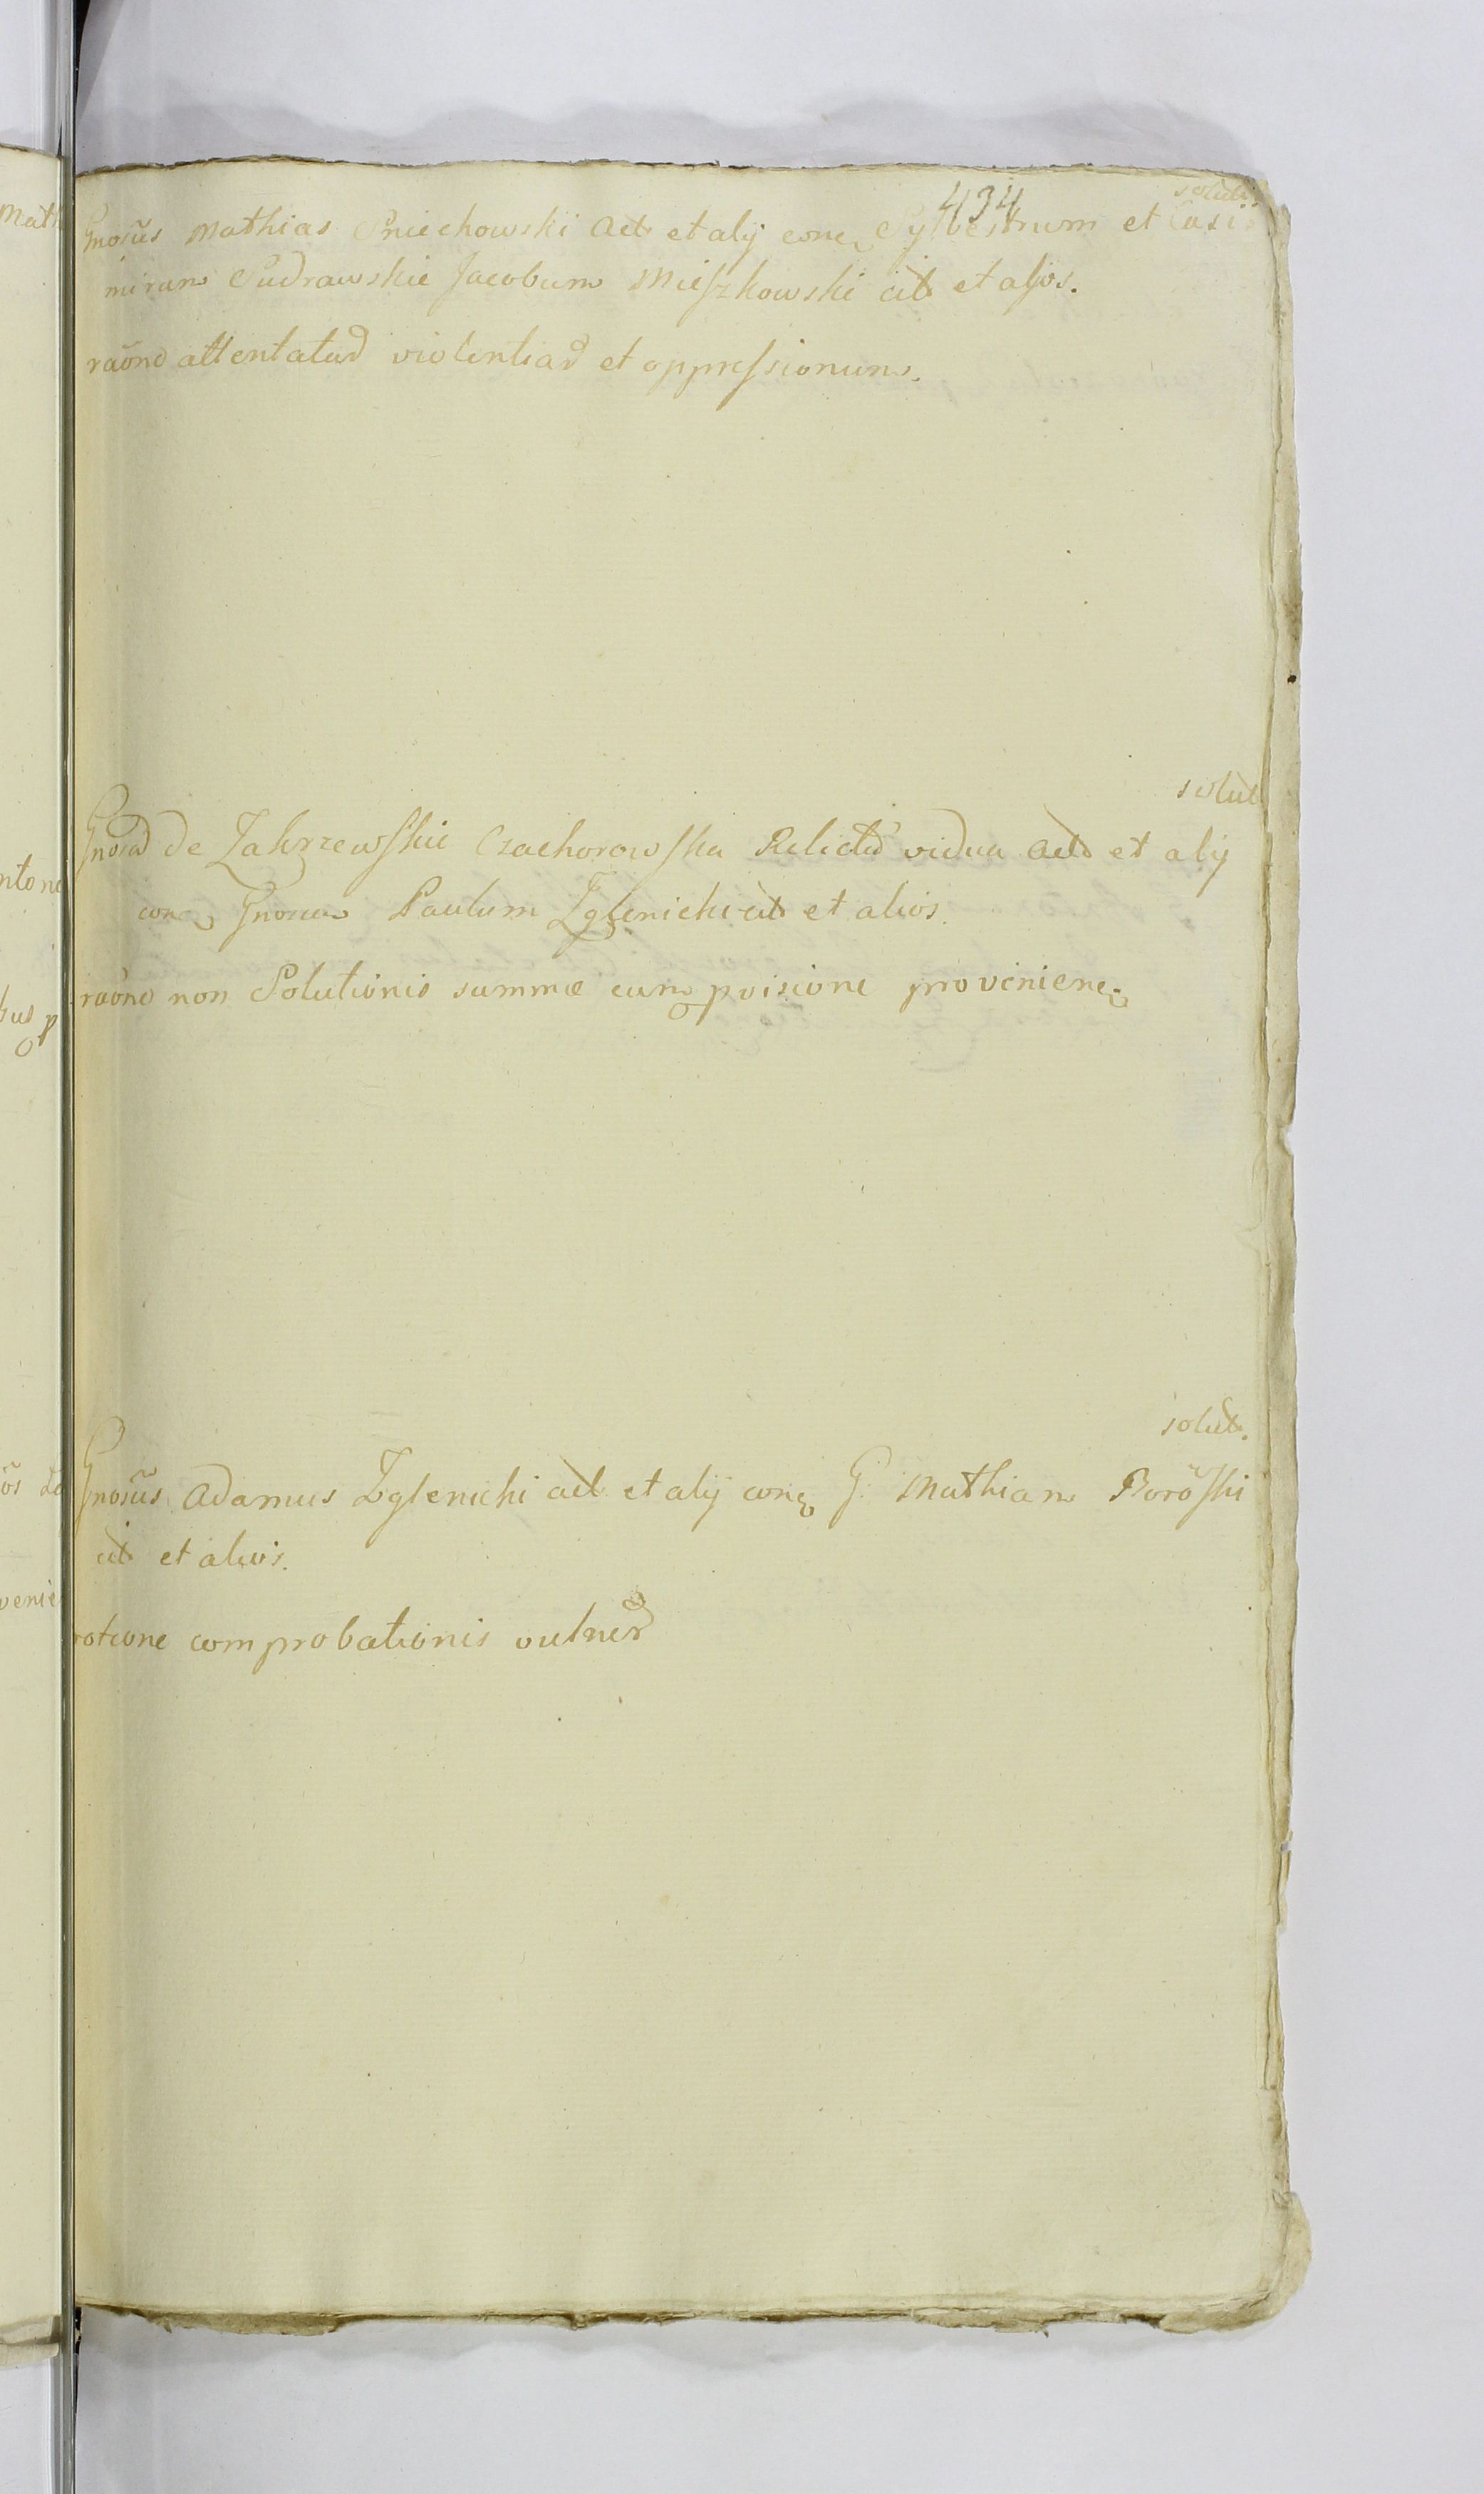 434
solut
Gnosus Mathias Sniechowski Act et alij conc Sylvestrum et Casi:
mirum Sudrawskie Jacobum Mieszkowski cit et alios.
raone attentatar violentiar et oppressionum.
solut
Gnosa de Zakrzewskie Czachorowska Relicta vidua Act et alij
conc Gnosum Paulum Zglenicki cit et alios.
raone non Solutionis summæ cum pvisione provenienc.
solut.
Gnosus Adamus Zglenicki act et alij conc G. Mathiam Boroski
cit et alios.
ratione comprobationis vulner